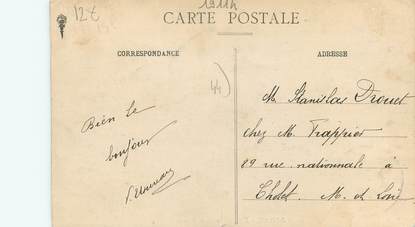 12€
1911
CARTE POSTALE
CORRESPONDANCE
ADRESSE
44
Bien le
bonjour
M. Stanislas Drouet
chez M. Frappier
29 rue nationale à
Cholet. M. et Loire